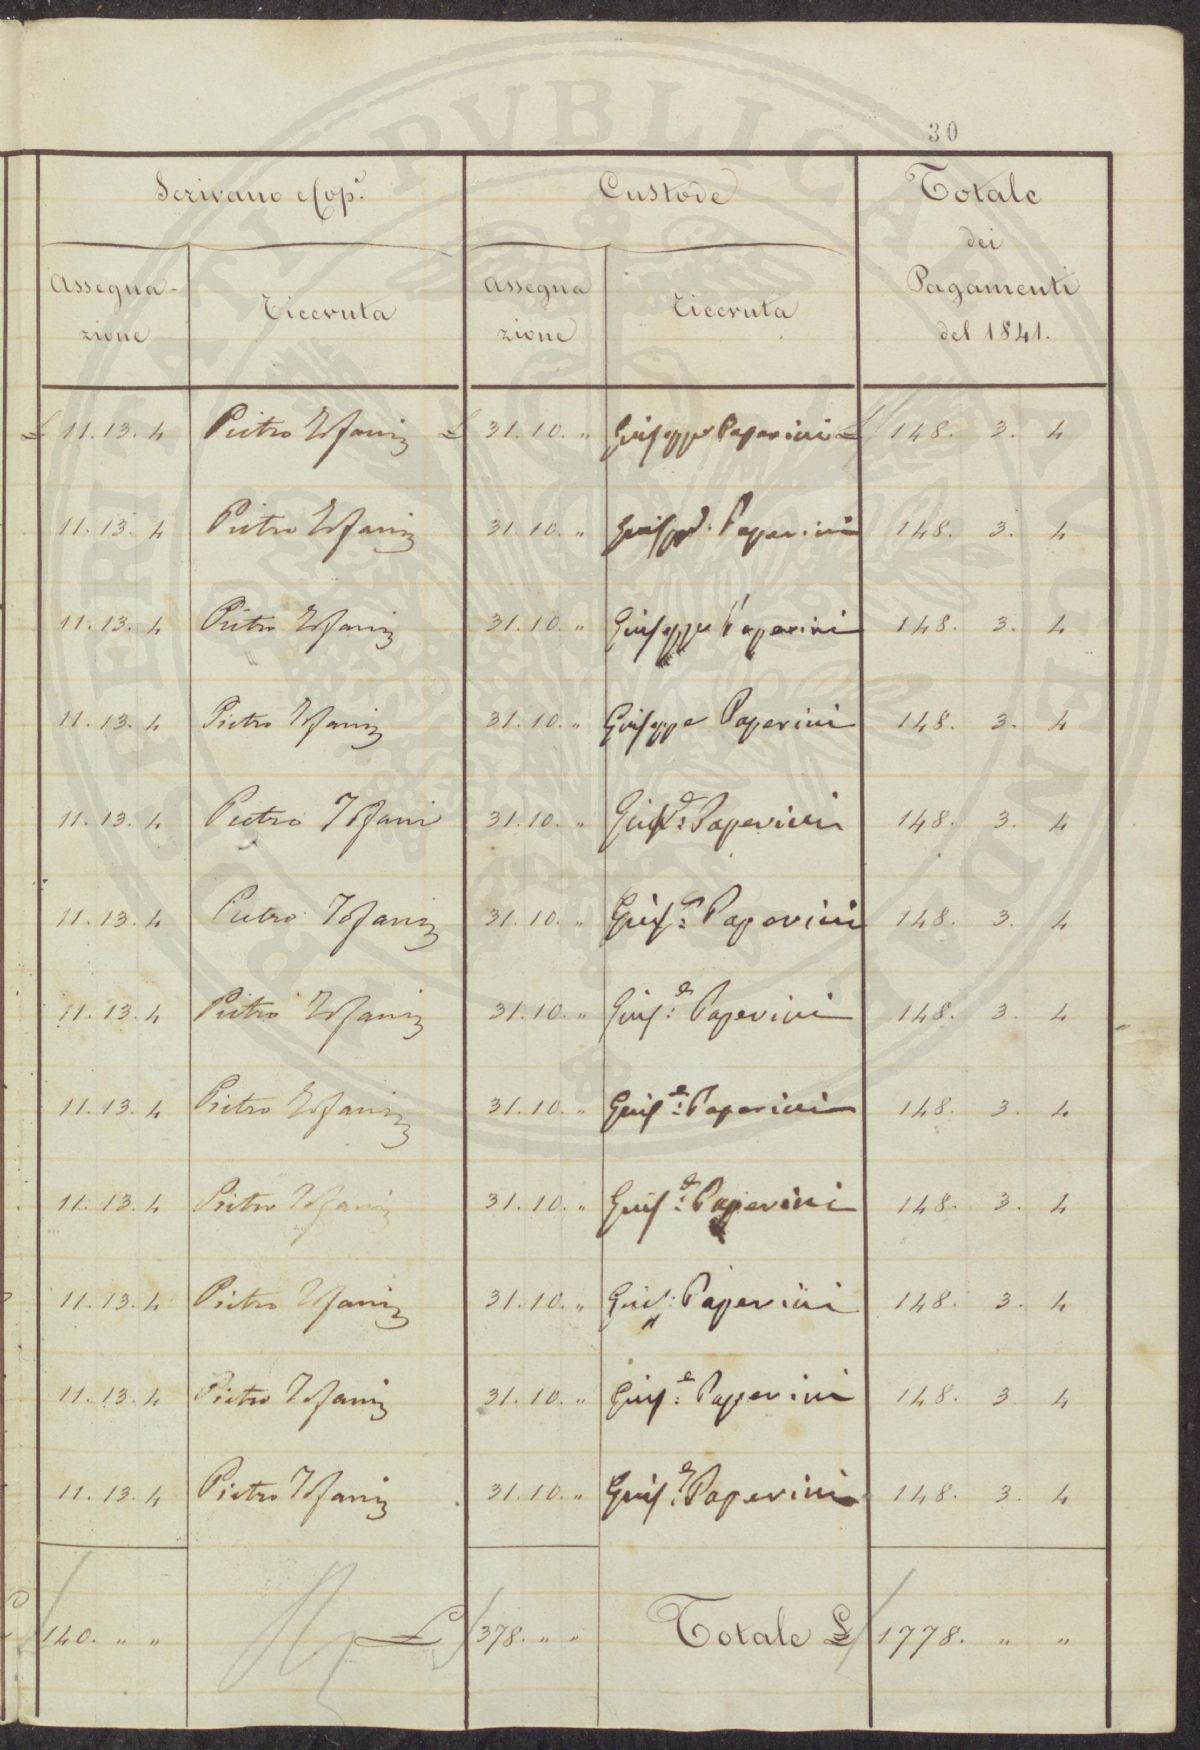 30
Scrivano e Cop.e Custode Totale
dei
Assegna- Riceruta Assegna Riceruta Pagamenti
zione zione del 1841.
£ 11. 13. 4 Pietro Tofani £ 31. 10. „ Giuseppe Paperini £ 148. 3. 4
11. 13. 4 Pietro Tofani 31. 10. „ Giuseppe Paperini 148. 3. 4
11. 13. 4 Pietro Tofani 31. 10. „ Giuseppe Paperini 148. 3. 4
11. 13. 4 Pietro Tofani 31. 10. „ Giuseppe Paperini 148. 3. 4
11. 13. 4 Pietro Tofani 31. 10. „ Gius.e Paperini 148. 3. 4
11. 13. 4 Pietro Tofani 31. 10. „ Gius.e Paperini 148. 3. 4
11. 13. 4 Pietro Tofani 31. 10. „ Gius.e Paperini 148. 3. 4
11. 13. 4 Pietro Tofani 31. 10. „ Gius.e Paperini 148. 3. 4
11. 13. 4 Pietro Tofani 31. 10. „ Gius.e Paperini 148. 3. 4
11. 13. 4 Pietro Tofani 31. 10. „ Gius: Paperini 148. 3. 4
11. 13. 4 Pietro Tofani 31. 10. „ Gius.e Paperini 148. 3. 4
11. 13. 4 Pietro Tofani 31. 10. „ Gius.e Paperini 148. 3. 4
£ 140. „ „ £ 378. „ „ Totale £ 1778. „ „